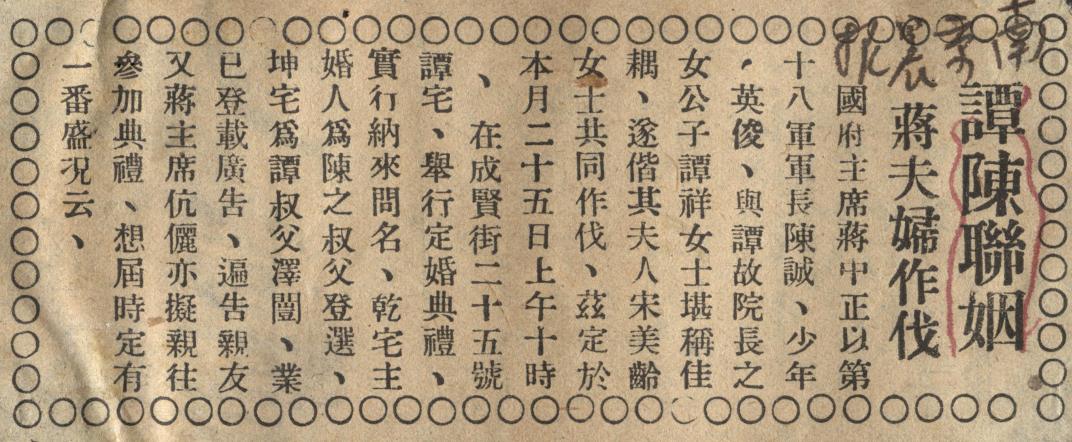 南京晨報
譚陳聯姻
蔣夫婦作伐
國府主席蔣中正以第
十八軍軍長陳誠、少年
，英俊、與譚故院長之
女公子譚祥女士堪稱佳
耦、遂偕其夫人宋美齡
女士共同作伐、茲定於
本月二十五日上午十時
、在成賢街二十五號
譚宅、舉行定婚典禮、
實行納來問名、乾宅主
婚人爲陳之叔父登選、
坤宅爲譚叔父澤闓、業
已登載廣告、遍告親友
又蔣主席伉儷亦擬親往
參加典禮、想屆時定有
一番盛況云、